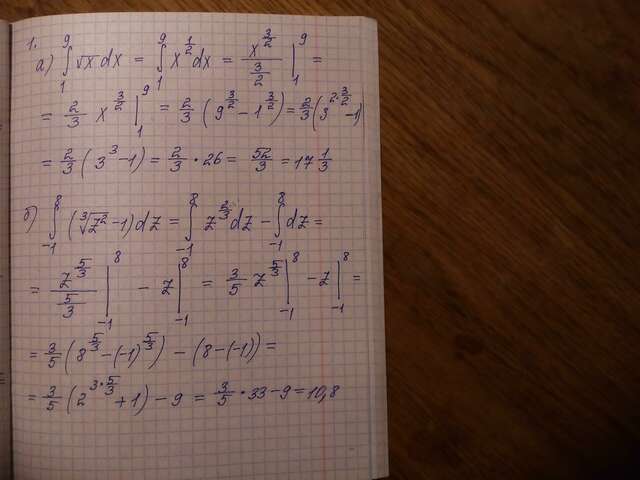 1.
а) ∫₁⁹ √x dx = ∫₁⁹ x^(1/2) dx = x^(3/2) / (3/2) |₁⁹ =
= 2/3 x^(3/2) |₁⁹ = 2/3 (9^(3/2) - 1^(3/2)) = 2/3 (3^(2·3/2) - 1)
= 2/3 (3³ - 1) = 2/3 · 26 = 52/3 = 17 1/3
б) ∫₋₁⁸ (∛z² - 1) dz = ∫₋₁⁸ z^(2/3) dz - ∫₋₁⁸ dz =
= z^(5/3) / (5/3) |₋₁⁸ - z |₋₁⁸ = 3/5 z^(5/3) |₋₁⁸ - z |₋₁⁸ =
= 3/5 (8^(5/3) - (-1)^(5/3)) - (8 - (-1)) =
= 3/5 (2^(3·5/3) + 1) - 9 = 3/5 · 33 - 9 = 10,8